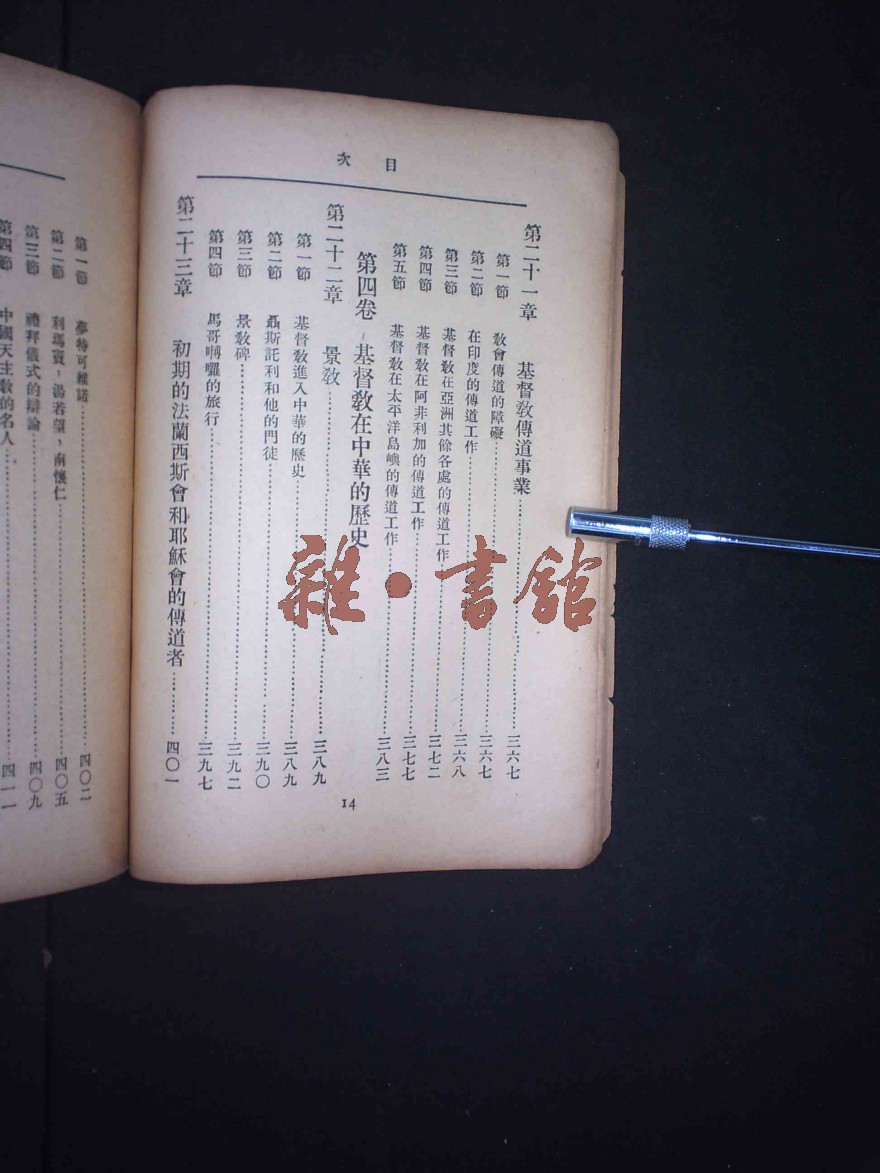 目　次
第二十一章　基督教傳道事業……三六七
第一節　敎會傳道的障礙……三六七
第二節　在印度的傳道工作……三六八
第三節　基督敎在亞洲其餘各處的傳道工作……三七二
第四節　基督敎在阿非利加的傳道工作……三七七
第五節　基督敎在太平洋島嶼的傳道工作……三八三
第四卷　基督敎在中華的歷史
第二十二章　景敎……三八九
第一節　基督敎進入中華的歷史……三八九
第二節　聶斯託利和他的門徒……三九〇
第三節　景敎碑……三九二
第四節　馬哥嘟囉的旅行……三九七
第二十三章　初期的法蘭西斯會和耶穌會的傳道者……四〇一
14
第一節　夢特可維諾……四〇二
第二節　利瑪竇，湯若望，南懷仁……四〇五
第三節　禮拜儀式的辯論……四〇九
第四節　中國天主敎的名人……四一一
雜·書館